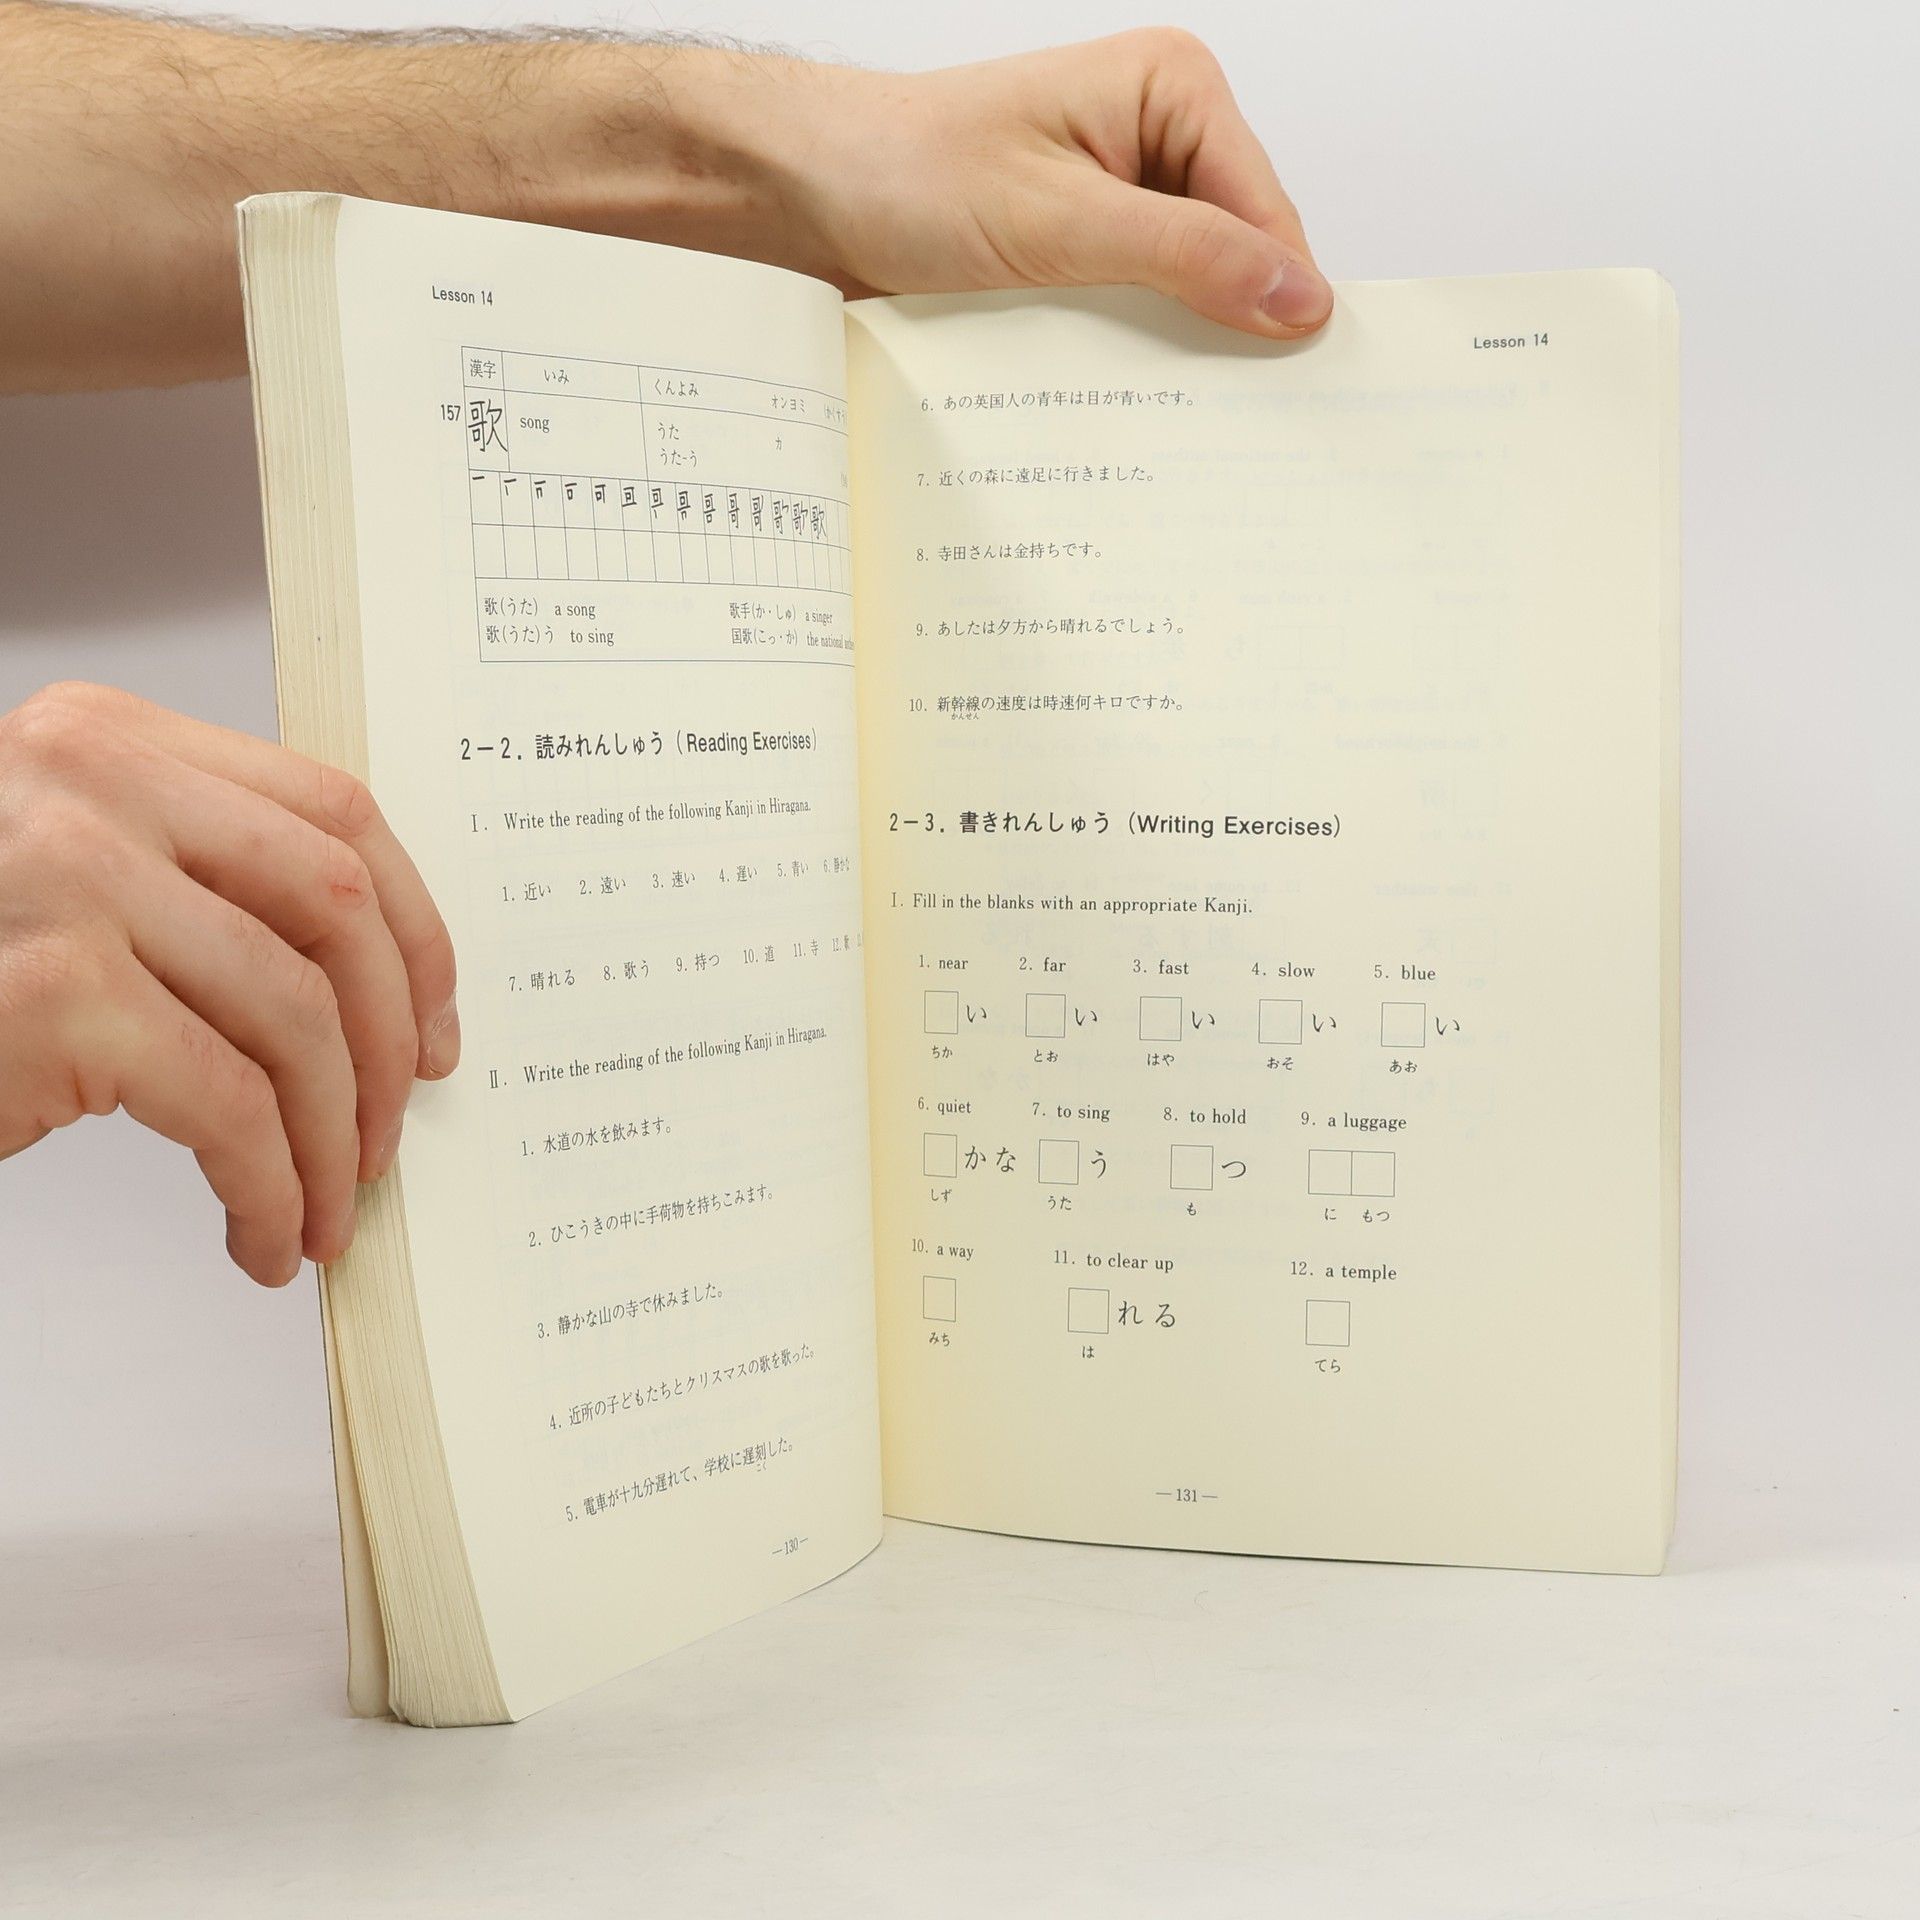 Lesson 14
漢字 いみ くんよみ オンヨミ
157 歌 song うた カ
うた-う
歌(うた) a song 歌手(か・しゅ) a singer
歌(うた)う to sing 国歌(こっ・か) the national
2－2. 読みれんしゅう (Reading Exercises)
Ⅰ. Write the reading of the following Kanji in Hiragana.
1. 近い 2. 遠い 3. 速い 4. 遅い 5. 青い 6. 静かな
7. 晴れる 8. 歌う 9. 持つ 10. 道 11. 寺 12. 歌
Ⅱ. Write the reading of the following Kanji in Hiragana.
1. 水道の水を飲みます。
2. ひこうきの中に手荷物を持ちこみます。
3. 静かな山の寺で休みました。
4. 近所の子どもたちとクリスマスの歌を歌った。
5. 電車が十九分遅れて、学校に遅刻した。
こく
—130—
Lesson 14
6. あの英国人の青年は目が青いです。
7. 近くの森に遠足に行きました。
8. 寺田さんは金持ちです。
9. あしたは夕方から晴れるでしょう。
10. 新幹線の速度は時速何キロですか。
かんせん
2－3. 書きれんしゅう (Writing Exercises)
Ⅰ. Fill in the blanks with an appropriate Kanji.
1. near 2. far 3. fast 4. slow 5. blue
い い い い い
ちか とお はや おそ あお
6. quiet 7. to sing 8. to hold 9. a luggage
かな う つ
しず うた も に もつ
10. a way 11. to clear up 12. a temple
れる
みち は てら
—131—